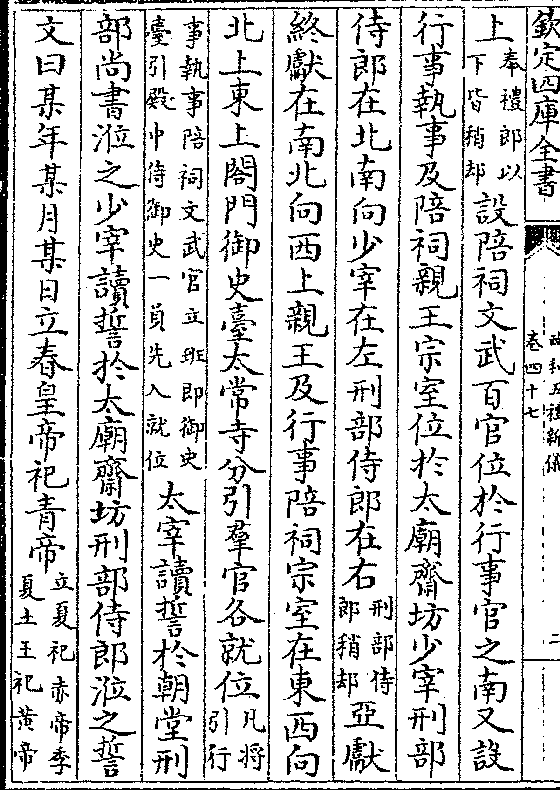 欽定四庫全書
政和五禮新儀
卷四十七
二
上奉禮郎以下皆稍却設陪祠文武百官位於行事官之南又設
行事執事及陪祠親王宗室位於太廟齋坊少宰刑部
侍郎在北南向少宰在左刑部侍郎在右刑部侍郎稍却亞獻
終獻在南北向西上親王及行事陪祠宗室在東西向
北上東上閤門御史臺太常寺分引羣官各就位凡將引行
事執事陪祠文武官立班即御史臺引殿中侍御史一員先入就位太宰讀誓於朝堂刑
部尚書涖之少宰讀誓於太廟齋坊刑部侍郎涖之誓
文曰某年某月某日立春皇帝祀青帝立夏祀赤帝季夏土王祀黄帝